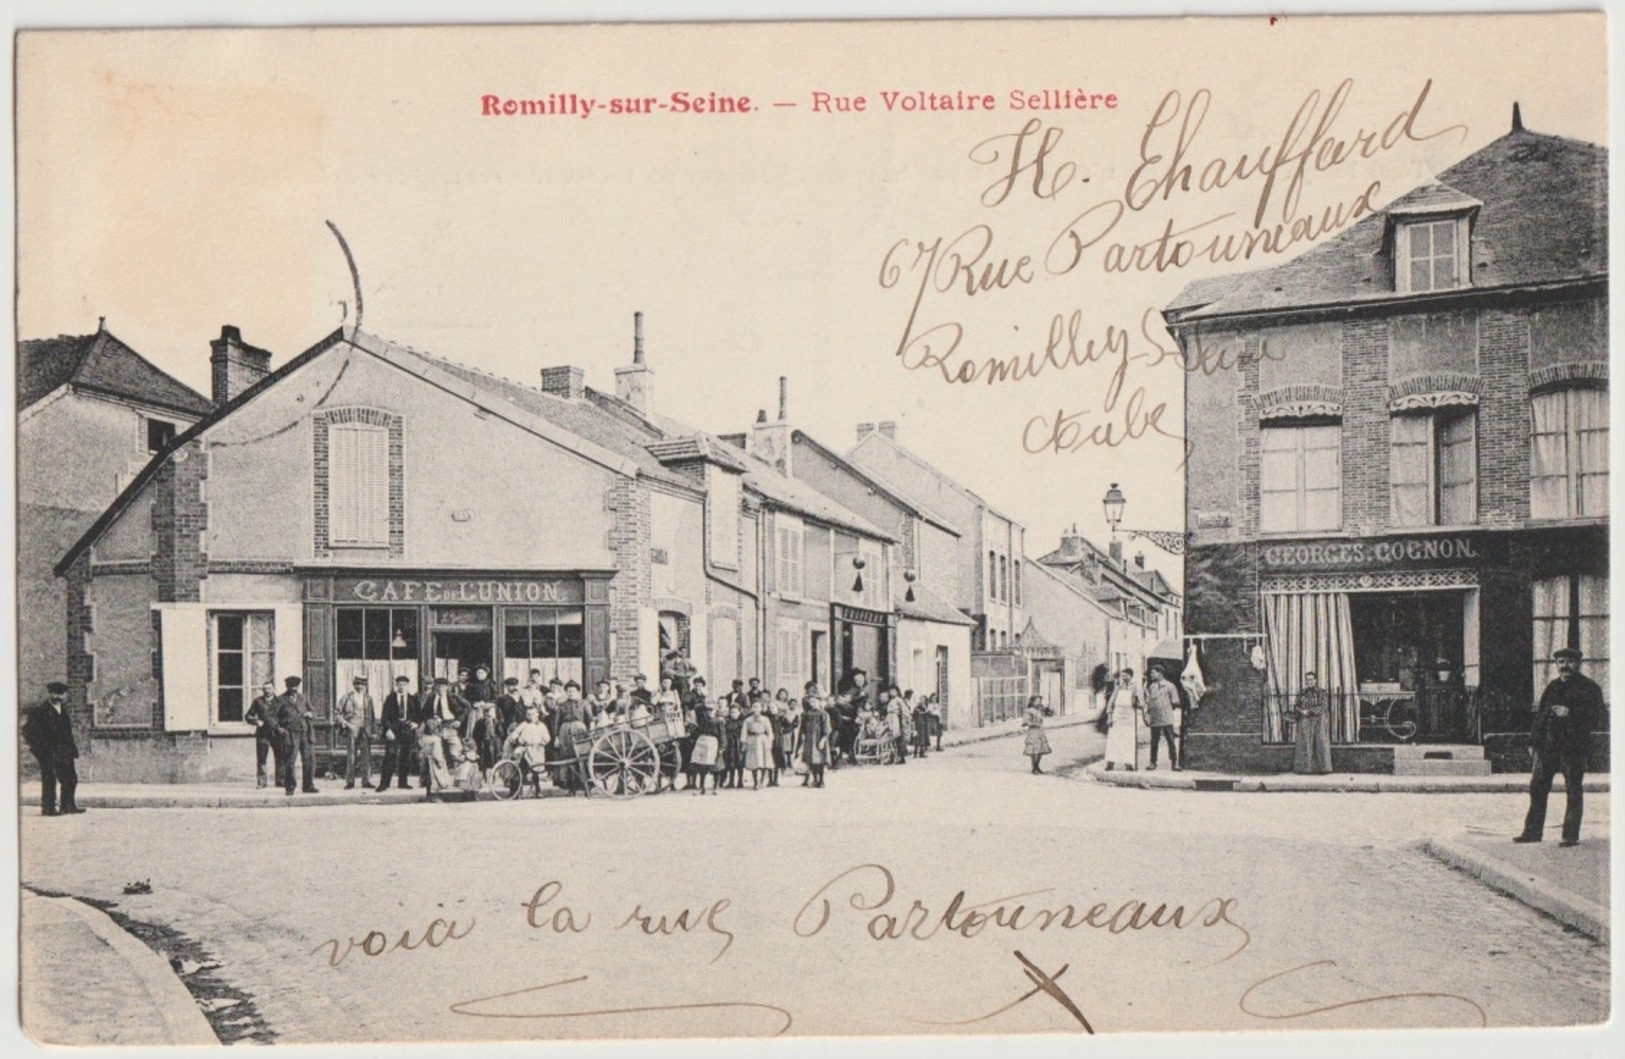 Romilly-sur-Seine. — Rue Voltaire Sellière
H. Chauffard
67 Rue Partouneaux
Romilly S Seine
Aube
CAFE DE L'UNION
COIFFEUR
GEORGES. GOGNON.
voià la rue Partouneaux